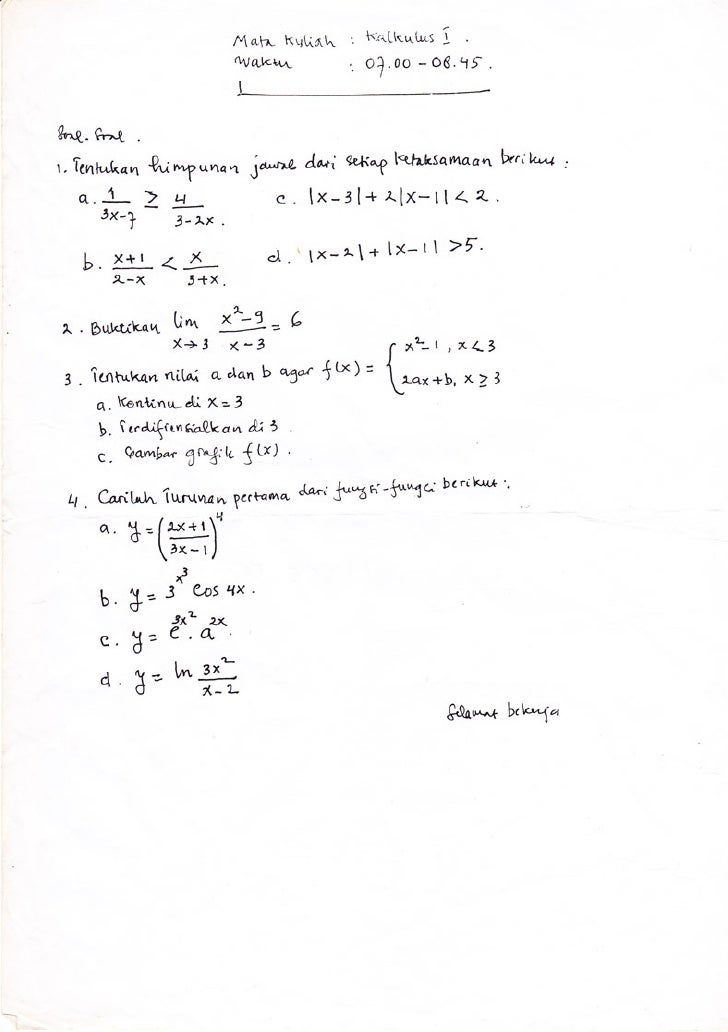 Mata Kuliah : Kalkulus I.
Waktu : 07.00 – 08.45.
Soal-Soal.
1. Tentukan himpunan jawab dari setiap ketaksamaan berikut :
a. 1/(3x-7) ≥ 4/(3-2x). c. |x-3| + 2|x-1| < 2.
b. (x+1)/(2-x) < x/(3+x). d. |x-2| + |x-1| > 5.
2. Buktikan lim x→3 (x²-9)/(x-3) = 6
3. Tentukan nilai a dan b agar f(x) = { x²-1, x < 3
2ax+b, x ≥ 3
a. Kontinu di x = 3
b. Terdifrensialkan di 3
c. Gambar grafik f(x).
4. Carilah Turunan pertama dari fungsi-fungsi berikut :
a. y = ((2x+1)/(3x-1))⁴
b. y = 3^x³ cos 4x.
c. y = e^3x² . a^2x.
d. y = ln 3x²/(x-2)
Selamat bekerja